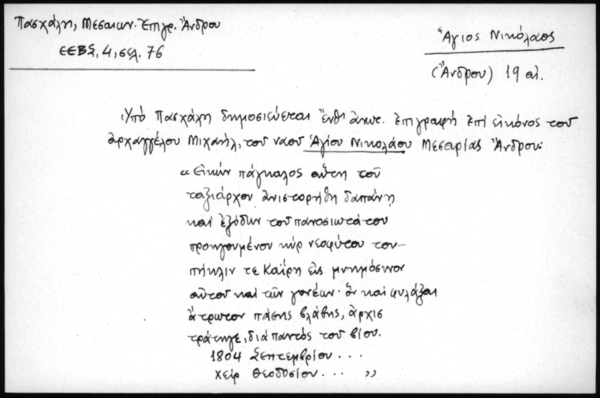 Πασχάλη, Μεσαιων. Ἐπιγρ. Ἄνδρου
ΕΕΒΣ, 4, σελ. 76
Ἅγιος Νικόλαος
(Ἄνδρου) 19 αἰ.
Ὑπὸ Πασχάλη δημοσιεύεται ἔνθ' ἀνωτ. ἐπιγραφὴ ἐπὶ εἰκόνος τοῦ
ἀρχαγγέλου Μιχαήλ, τοῦ ναοῦ Ἁγίου Νικολάου Μεσαρίας Ἄνδρου:
« Εἰκὼν πάγκαλος αὕτη τοῦ
ταξιάρχου ἀνιστορήθη δαπάνη
καὶ ἐξόδων τοῦ πανοσιωτάτου
προηγουμένου κὺρ νεοφύτου τοὐ-
πίκλιν τε Καΐρη εἰς μνημόσινον
αὐτοῦ καὶ τῶν γονέων· ὃν καὶ φυλάξαι
ἄτρωτον πάσης βλάβης, ἀρχισ
τράτηγε, διὰ παντὸς τοῦ βίου.
1804 Σεπτεμβρίου . . .
χεὶρ Θεοδοσίου . . . »